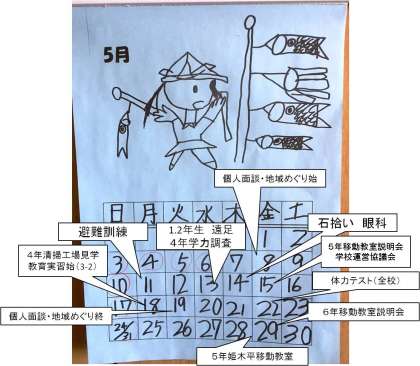 5月
個人面談・地域めぐり始
避難訓練
1.2年生 遠足
4年学力調査
石拾い 眼科
日 月 火 水 木 金 土
1 2
4年清掃工場見学
教育実習始(3-2)
5年移動教室説明会
学校運営協議会
3 4 5 6 7 8 9
体力テスト(全校)
10 11 12 13 14 15 16
個人面談・地域めぐり終
6年移動教室説明会
17 18 19 20 21 22 23
24/31 25 26 27 28 29 30
5年姫木平移動教室